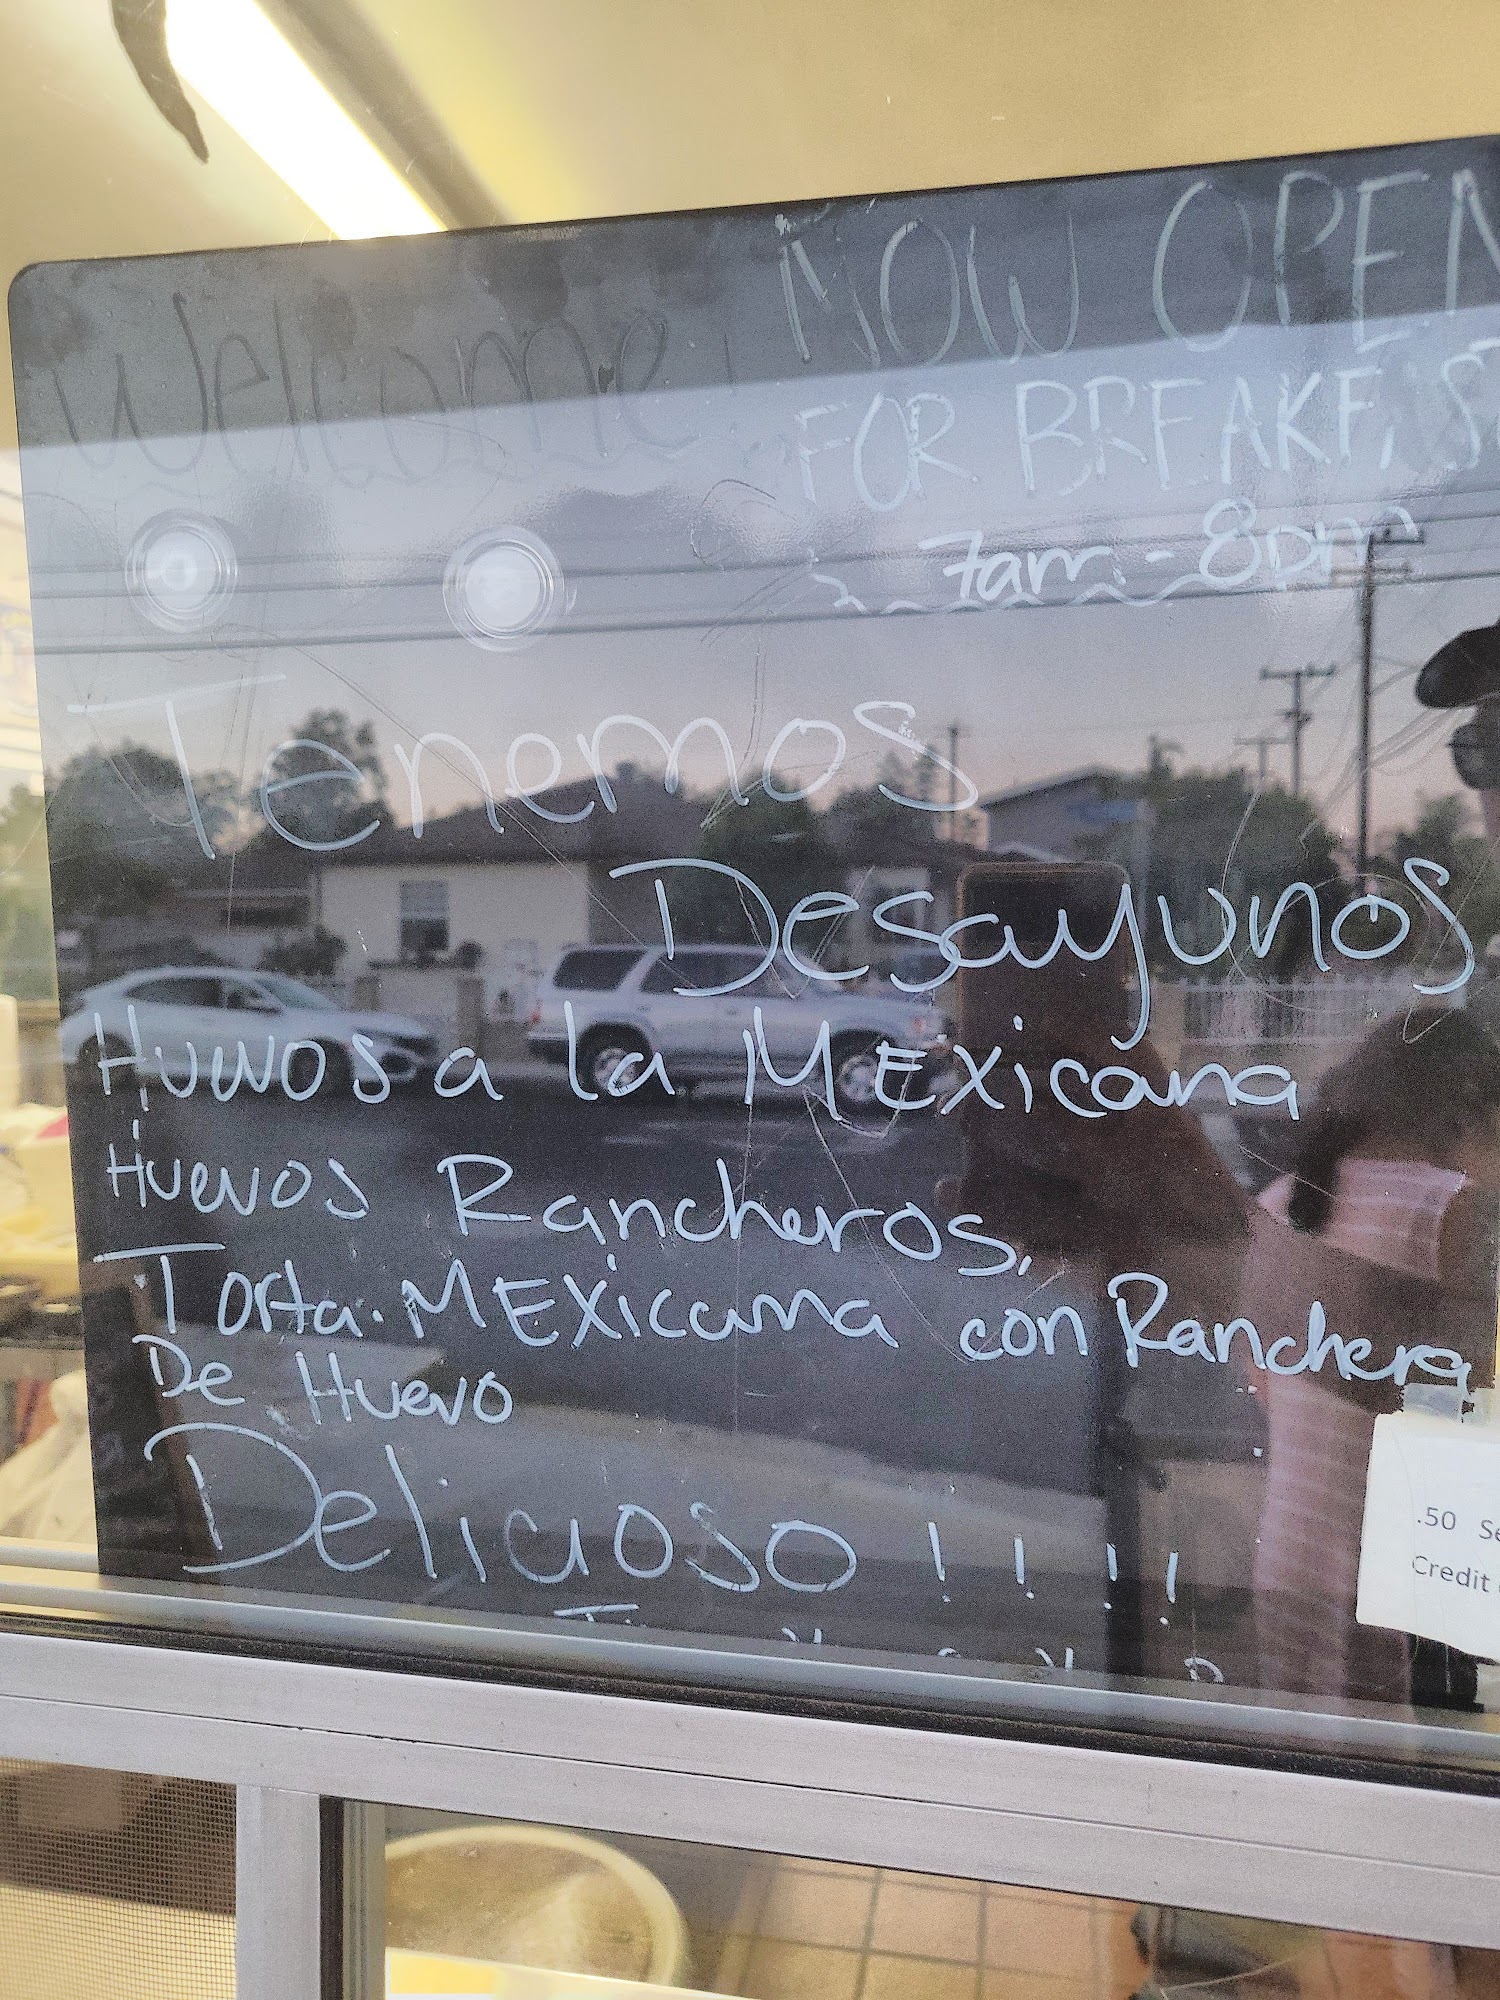 Welcome
NOW OPEN
FOR BREAKFAST
7am - 8pm
Tenemos
Desayunos
Huevos a la MEXicana
Huevos Rancheros,
Torta. MEXicana con Ranchera
De Huevo
Delicioso !!!!
.50
Credit